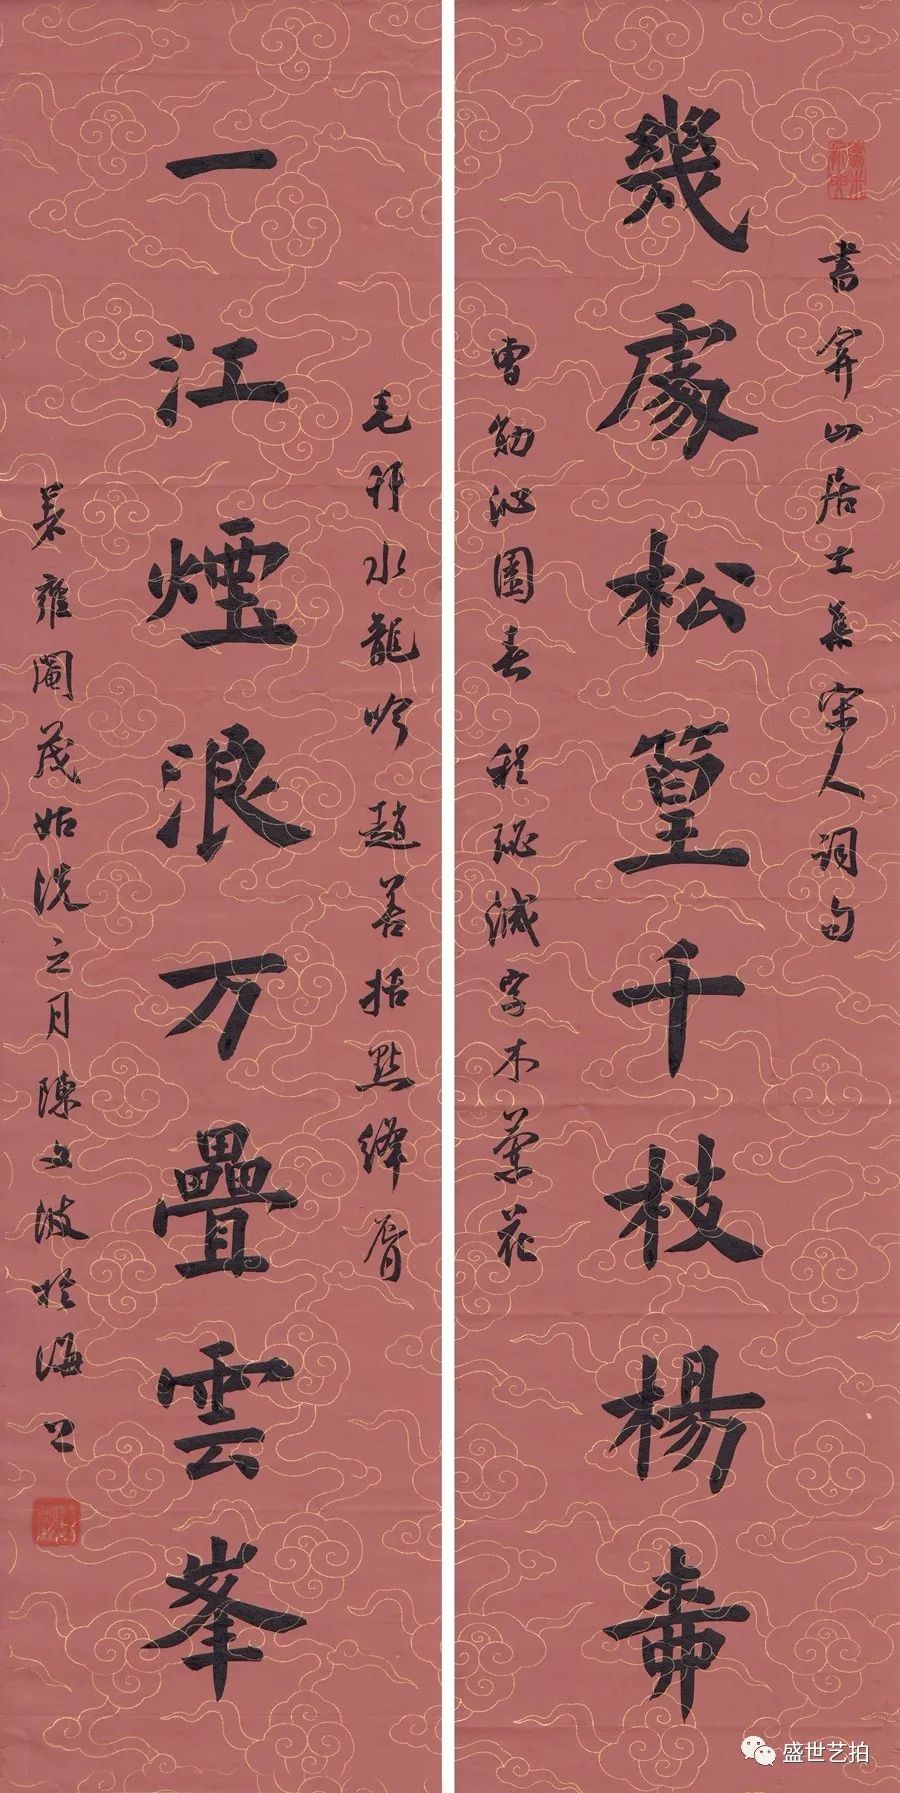 書弇山居士集宋人詞句
幾處松篁千枝楊桺
曹勛沁園春 程珌減字木蘭花
毛幵水龍吟 趙善括點絳脣
一江煙浪万疊雲峯
著雍閹茂姑洗之月陳文波於海上
盛世艺拍